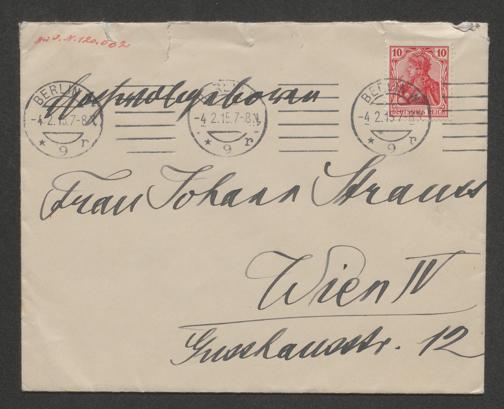 10 10
BERLIN W
-4.2.15.7-8N.
* 9 r
-4.2.15.7-8N.
* 9 r
BERLIN W
-4.2.15.7-8N.
* 9 r
Hochwohlgeboren
Frau Johann Strauss
Wien IV
Gusshausstr. 12